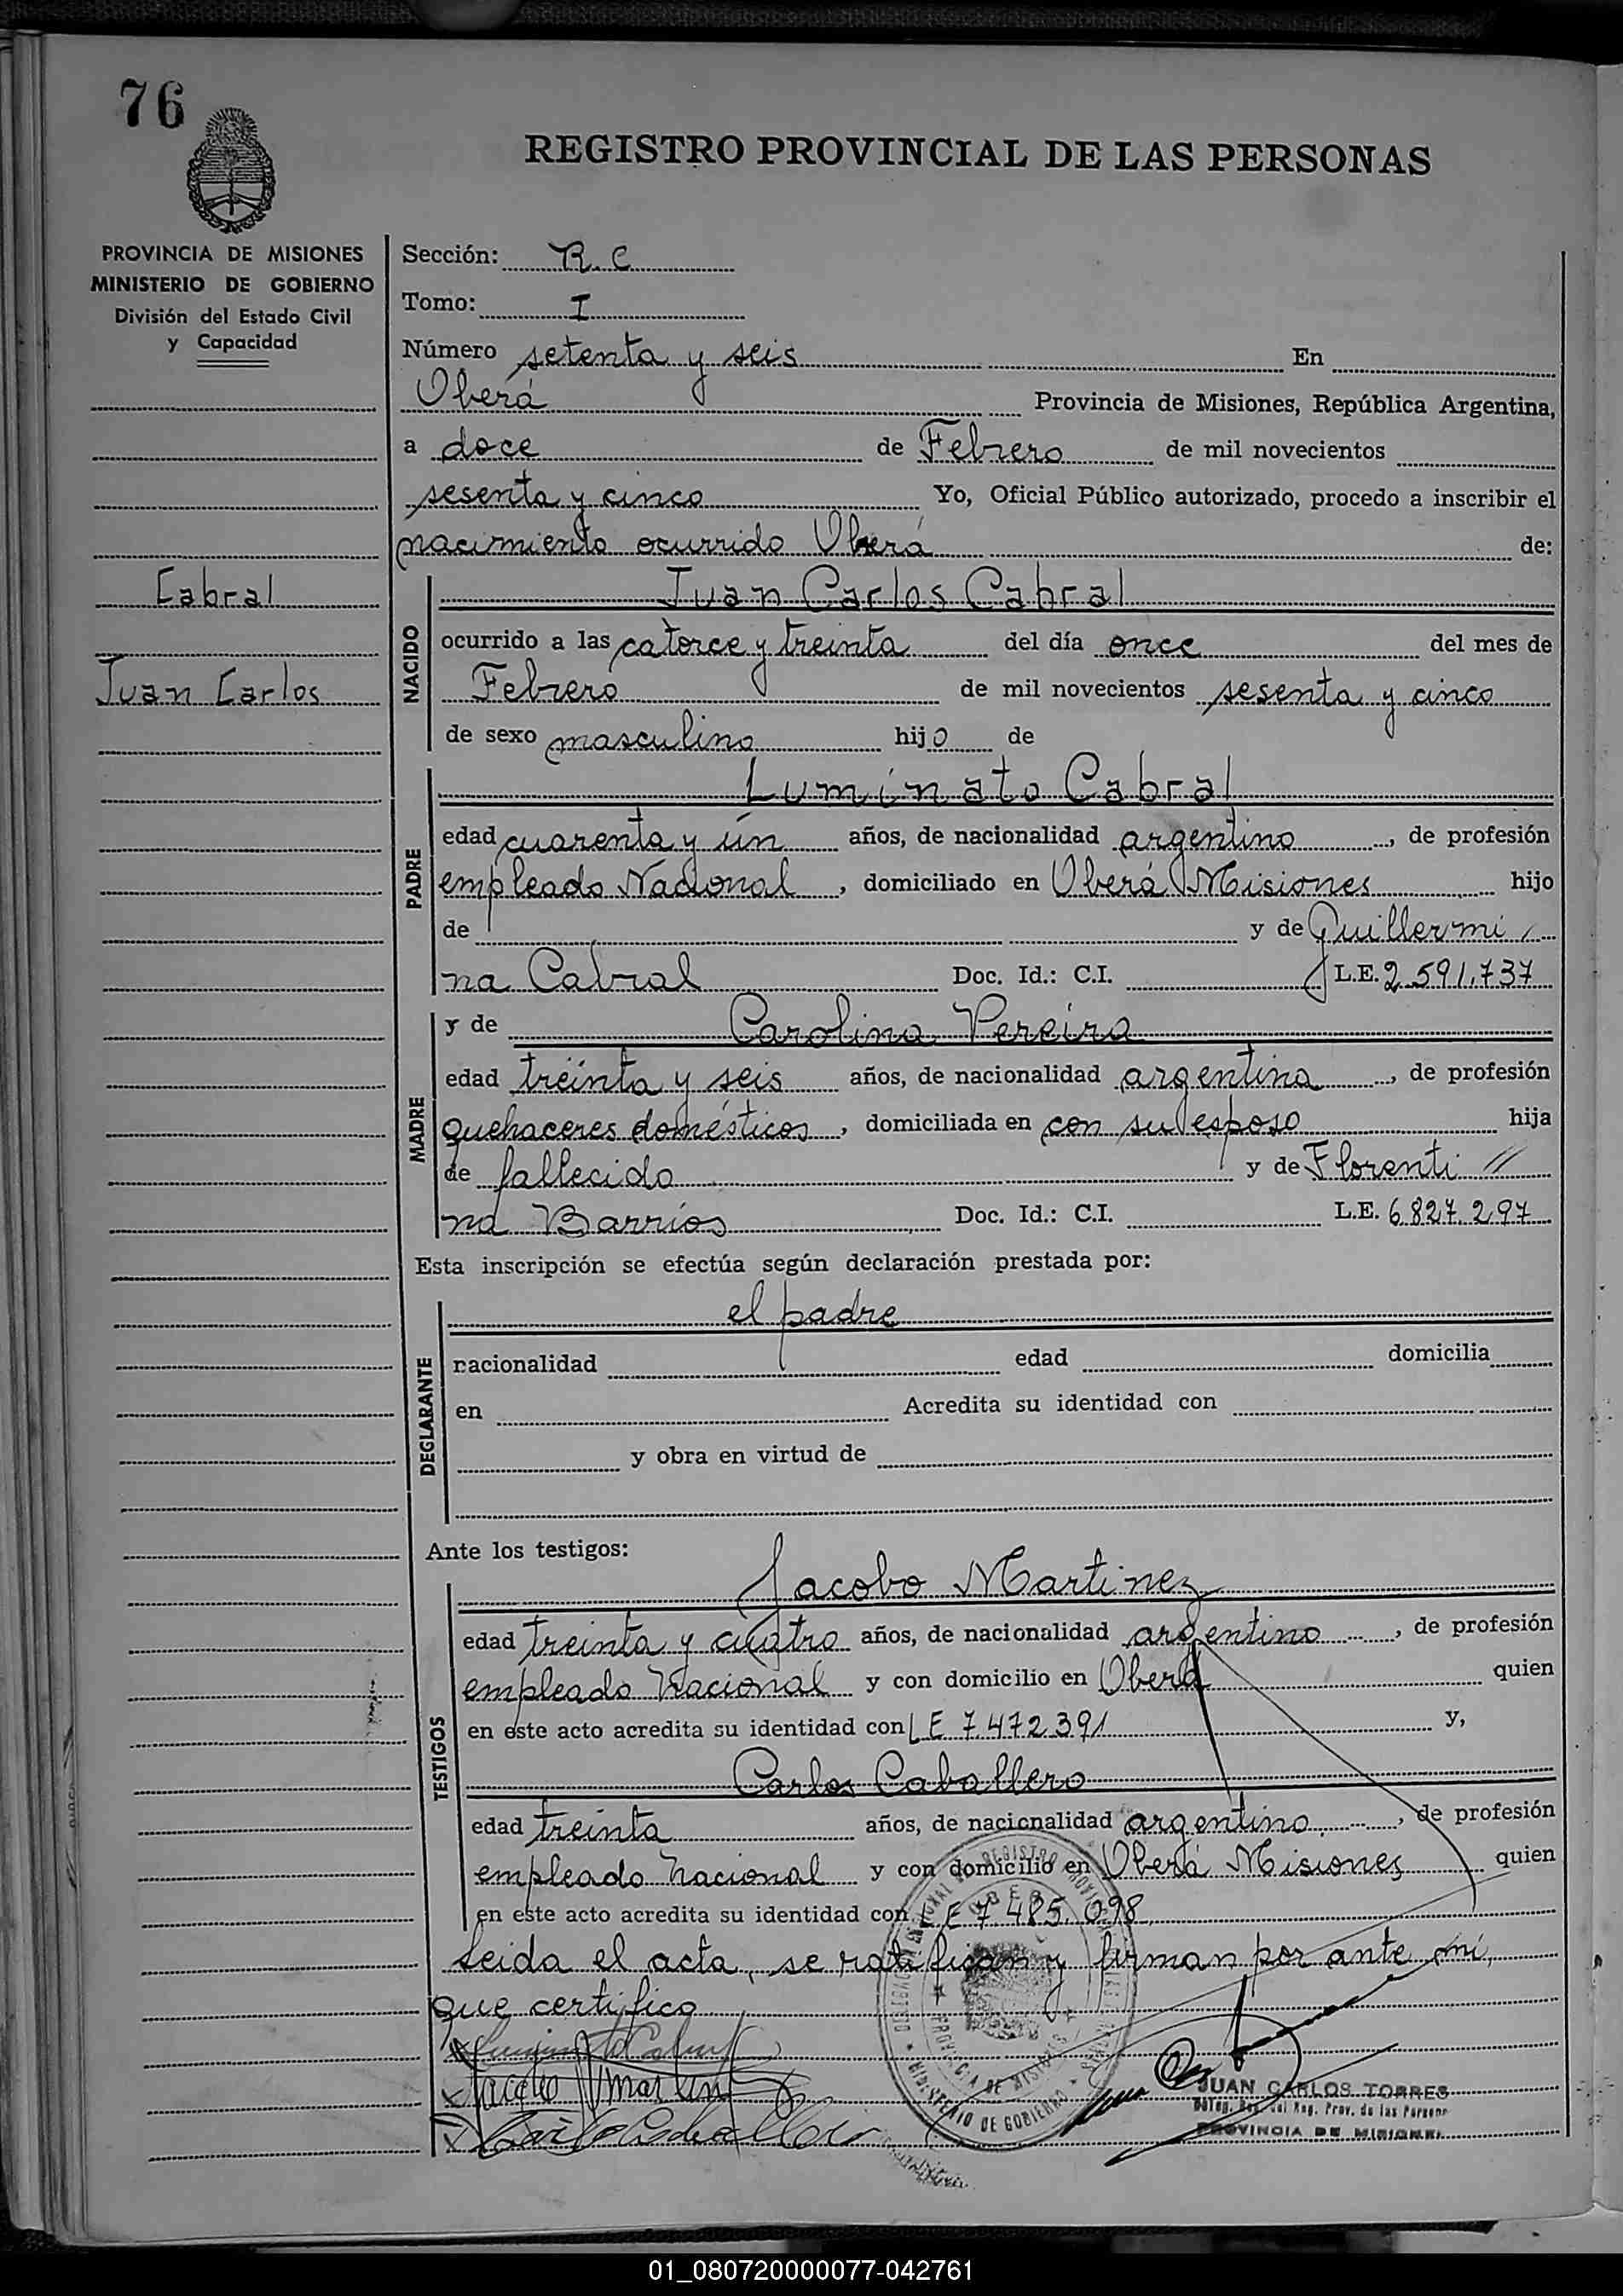 76
REGISTRO PROVINCIAL DE LAS PERSONAS
PROVINCIA DE MISIONES
MINISTERIO DE GOBIERNO
División del Estado Civil
y Capacidad
Cabral
Juan Carlos
Sección: R.C
Tomo: I
Número setenta y seis En
Oberá Provincia de Misiones, República Argentina,
a doce de Febrero de mil novecientos
sesenta y cinco Yo, Oficial Público autorizado, procedo a inscribir el
nacimiento ocurrido Oberá de:
NACIDO
Juan Carlos Cabral
ocurrido a las catorce y treinta del día once del mes de
Febrero de mil novecientos sesenta y cinco
de sexo masculino hijo de
PADRE
Luminato Cabral
edad cuarenta y un años, de nacionalidad argentino, de profesión
empleado Nacional, domiciliado en Oberá Misiones hijo
de y de Guillermi
na Cabral Doc. Id.: C.I. L.E. 2.591.737
MADRE
y de Carolina Pereira
edad treinta y seis años, de nacionalidad argentina, de profesión
quehaceres domésticos, domiciliada en con su esposo hija
de fallecido y de Florenti //
na Barrios Doc. Id.: C.I. L.E. 6.827.297
Esta inscripción se efectúa según declaración prestada por:
DEGLARANTE
el padre
nacionalidad edad domicilia
en Acredita su identidad con
y obra en virtud de
Ante los testigos:
TESTIGOS
Jacobo Martinez
edad treinta y cuatro años, de nacionalidad argentino, de profesión
empleado Nacional y con domicilio en Oberá quien
en este acto acredita su identidad con L E 7.472.391 y,
Carlos Caballero
edad treinta años, de nacionalidad argentino, de profesión
empleado nacional y con domicilio en Oberá Misiones quien
en este acto acredita su identidad con L E 7.485.098
Leida el acta, se ratifican y firman por ante mi,
que certifico
PROVINCIA DE MISIONES
MINISTERIO DE GOBIERNO
JUAN CARLOS TORRES
Prov. de las Person
PROVINCIA DE MISIONES
01_080720000077-042761